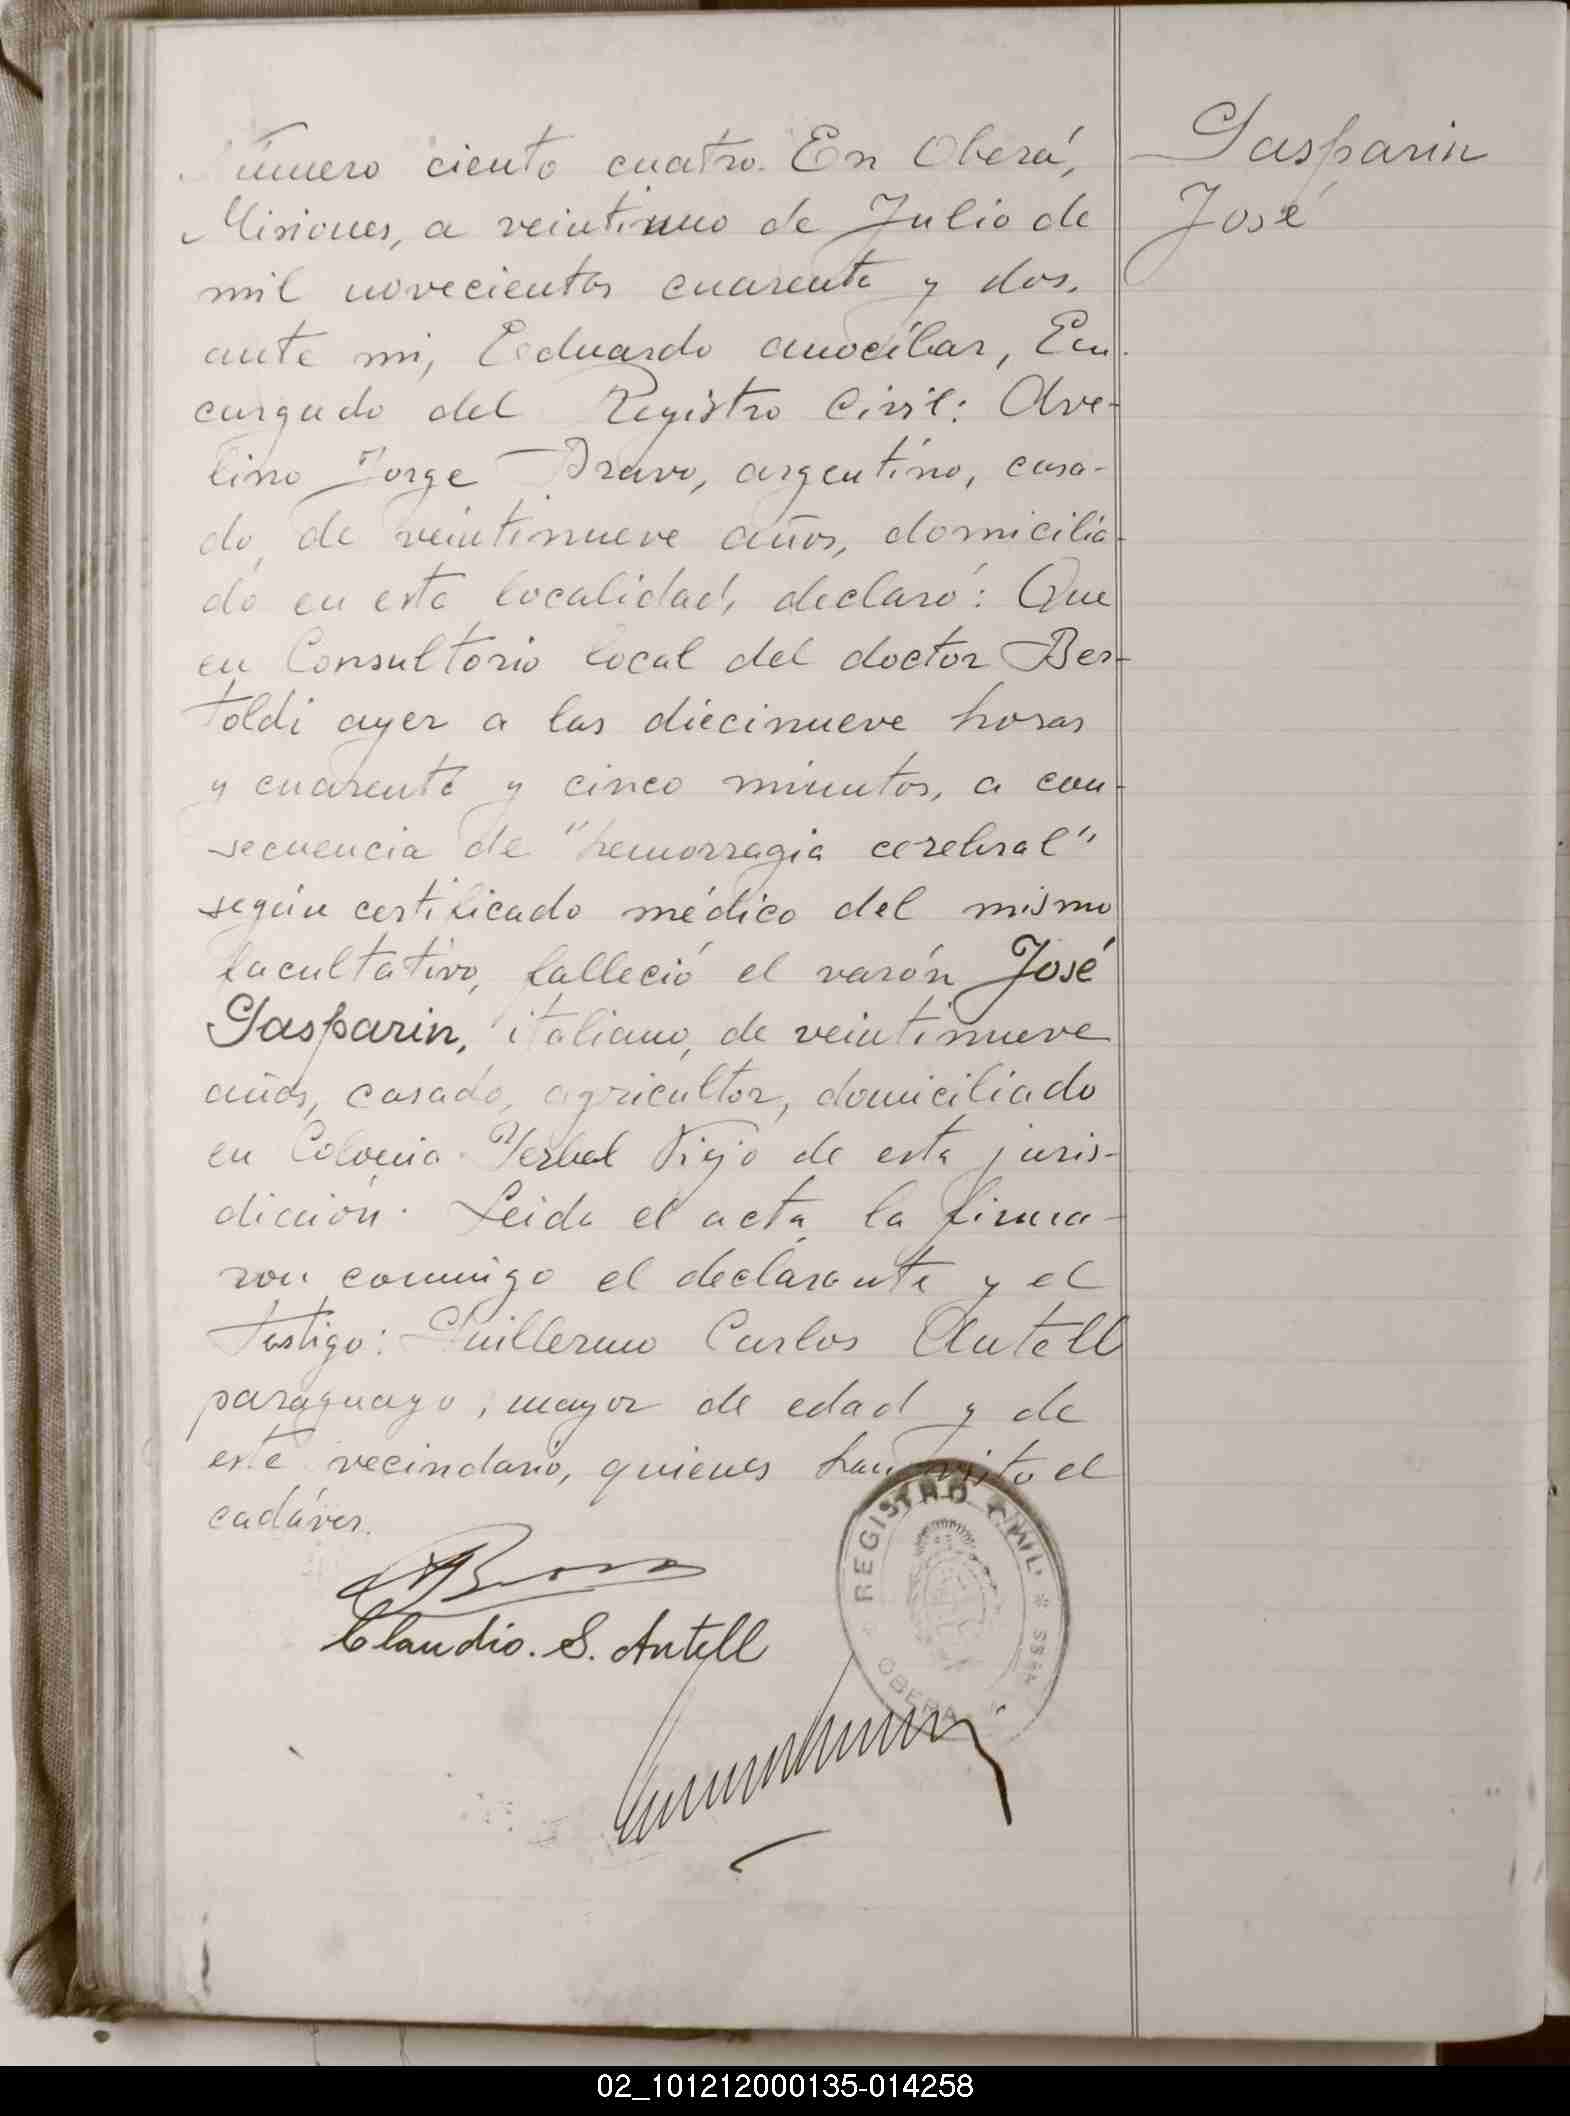 Número ciento cuatro. En Oberá,
Gasparin
José
Misiones, a veintiuno de Julio de
mil novecientos cuarenta y dos,
ante mi, Eduardo Anocíbar, En
cargado del Registro Civil: Ave-
lino Jorge Bravo, argentino, casa-
do, de veintinueve años, domicilia-
do en esta localidad, declaró: Que
en Consultorio local del doctor Ber-
toldi ayer a las diecinueve horas
y cuarenta y cinco minutos, a con-
secuencia de "hemorragia cerebral"
según certificado médico del mismo
facultativo, falleció el varón José
Gasparin, italiano, de veintinueve
años, casado, agricultor, domiciliado
en Colonia Yerbal Viejo de esta juris-
dicción. Leida el acta, la firma-
ron conmigo el declarante y el
testigo: Guillermo Carlos Antell
paraguayo, mayor de edad y de
este vecindario, quienes han visto el
cadáver.
REGISTRO CIVIL * * OBERA
Claudio. S. Antell
02_101212000135-014258